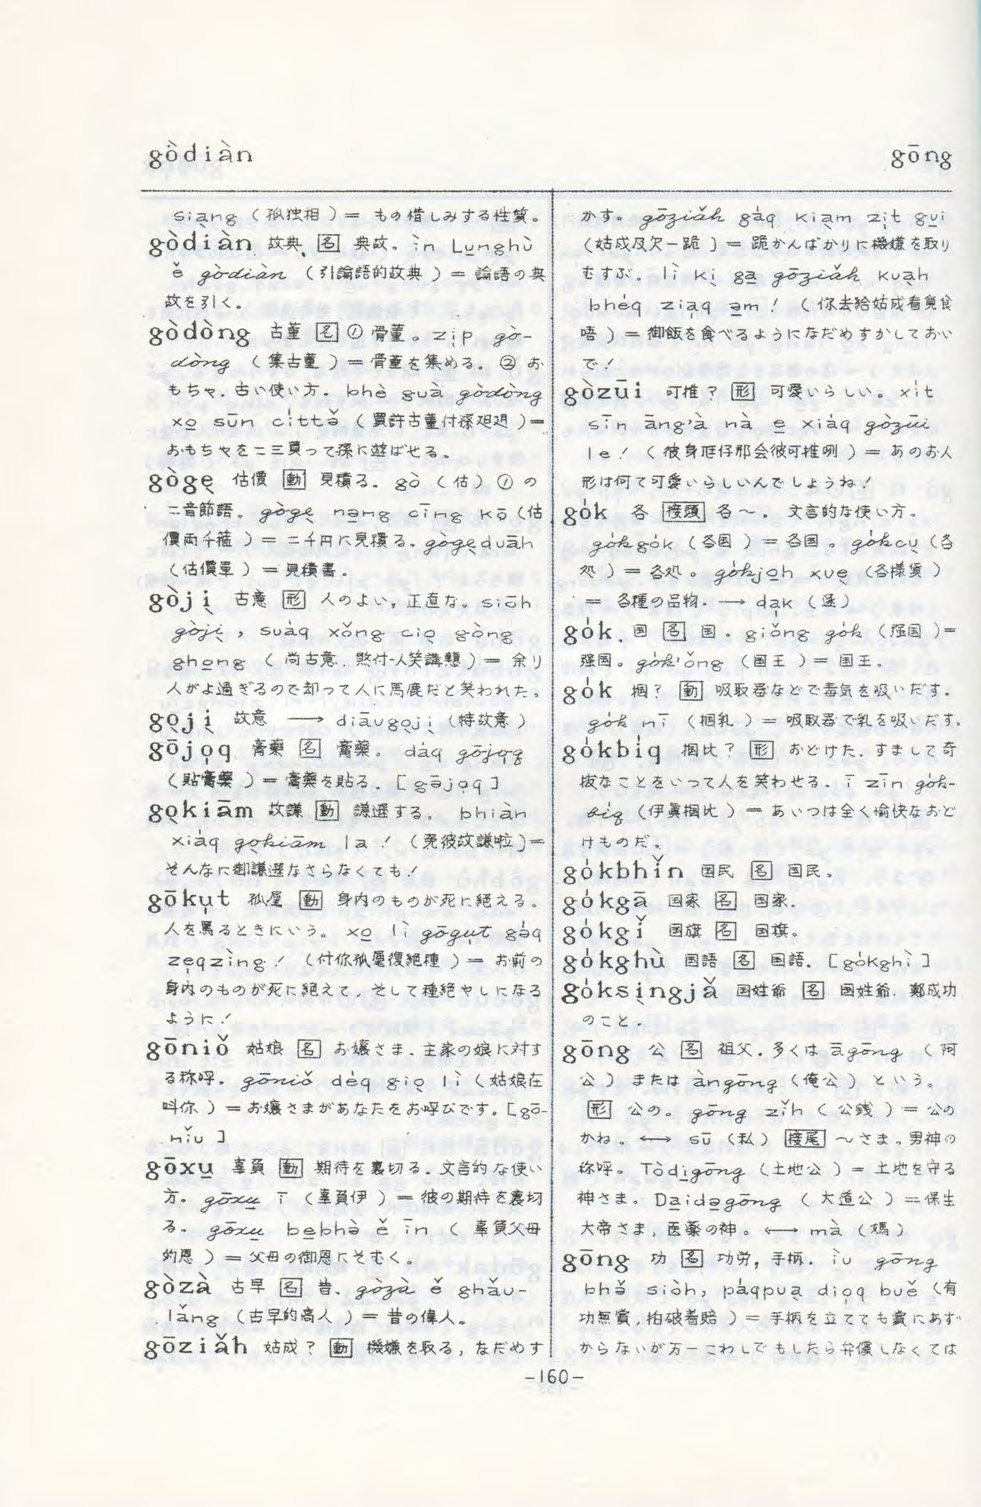 gòdiàn
gōng
siạng (孤独相)= もの惜しみする性質。
gòdiàn 故典 名 典故。ìn Lụnghù
ě gòdiàn (引論語的故典)= 論語の典
故を引く。
gòdòng 古董 名 ① 骨董。zịp gò-
dòng (集古董)= 骨董を集める。② お
もちゃ。古い使い方。bhè guà gòdòng
xọ sūn (買許古董付孫)=
おもちゃを二三買って孫に遊ばせる。
gògẹ 估價 動 見積る。gò (估) ① の
二音節語。gògẹ nạng cīng kō (估
價兩千箍)= 二千円に見積る。gògẹduāh
(估價單)= 見積書。
gòjị 古意 形 人のよい，正直な。siōh
gòjị, suàq xǒng ciọ gòng
ghọng (尚古意，煞付人笑講戇)= 余り
人がよ過ぎるので却って人に馬鹿だと笑われた。
gọjị 故意 ⟶ diāugọjị (特故意)
gōjọq 膏藥 名 膏藥。dáq gōjọq
(貼膏藥)= 膏藥を貼る。[gōjọq]
gọkiām 故謙 動 謙遜する。bhiàn
xiáq gọkiām la! (免彼故謙啦)=
そんなに御謙遜なさらなくても!
gōkụt 孤屈 動 身内のものが死に絶える。
人を罵るときにいう。xọ lì gōgụt gáq
zẹqzìng! (付你孤屈復絕種)= お前の
身内のものが死に絶えて，そして種絶やしになる
ように!
gōniǒ 姑娘 名 お嬢さま。主家の娘に対す
る称呼。gōniǒ déq giọ lì (姑娘在
叫你)= お嬢さまがあなたをお呼びです。[gō-
nǐu]
gōxụ 辜負 動 期待を裏切る。文言的な使い
方。gōxụ ī (辜負伊)= 彼の期待を裏切
る。gōxụ bẹbhà ě īn (辜負父母
的恩)= 父母の御恩にそむく。
gòzà 古早 名 昔。gòzà ě ghǎu-
lǎng (古早的高人)= 昔の偉人。
gōziǎh 姑成? 動 機嫌を取る，なだめす
かす。gōziǎh gáq kiạm zịt guì
(姑成及欠一跪)= 跪かんばかりに機嫌を取り
むすぶ。lì kị gạ gōziǎh kuạh
bhéq ziạq ạm! (你去給姑成看覓食
唔)= 御飯を食べるようになだめすかしておい
で!
gòzūi 可推? 形 可愛いらしい。xít
sīn āng'à nà ẹ xiáq gòzūi
le! (彼身尪仔那会彼可推咧)= あのお人
形は何て可愛いらしいんでしょうね!
gók 各 接頭 各〜。文言的な使い方。
gókgók (各国)= 各国。gókcụ (各
処)= 各処。gókjọh xuẹ (各様貨)
= 各種の品物。⟶ dạk (逐)
gók 国 名 国。giǒng gók (强国)=
强国。gók'ǒng (国王)= 国王。
gók 摑? 動 吸取器などで毒気を吸いだす。
gók nī (摑乳)= 吸取器で乳を吸いだす。
gókbíq 摑比? 形 おどけた。すまして奇
抜なことをいって人を笑わせる。ī zīn gók-
bíq (伊眞摑比)= あいつは全く愉快なおど
けものだ。
gókbhǐn 国民 名 国民。
gókgā 国家 名 国家。
gókgǐ 国旗 名 国旗。
gókghù 国語 名 国語。[gókghì]
góksịngjǎ 国姓爺 名 国姓爺。鄭成功
のこと。
gōng 公 名 祖父。多くは āgōng (阿
公) または àngōng (俺公) という。
形 公の。gōng zǐh (公銭)= 公の
かね。⟷ sū (私) 接尾 〜さま。男神の
称呼。Tòdịgōng (土地公)= 土地を守る
神さま。Dạidọgōng (大道公)= 保生
大帝さま，医薬の神。⟷ mà (媽)
gōng 功 名 功労，手柄。ìu gōng
bhǒ siòh, páqpuạ diọq buě (有
功無賞，拍破着賠)= 手柄を立てても賞にあず
からないが万一こわしでもしたら弁償しなくては
-160-